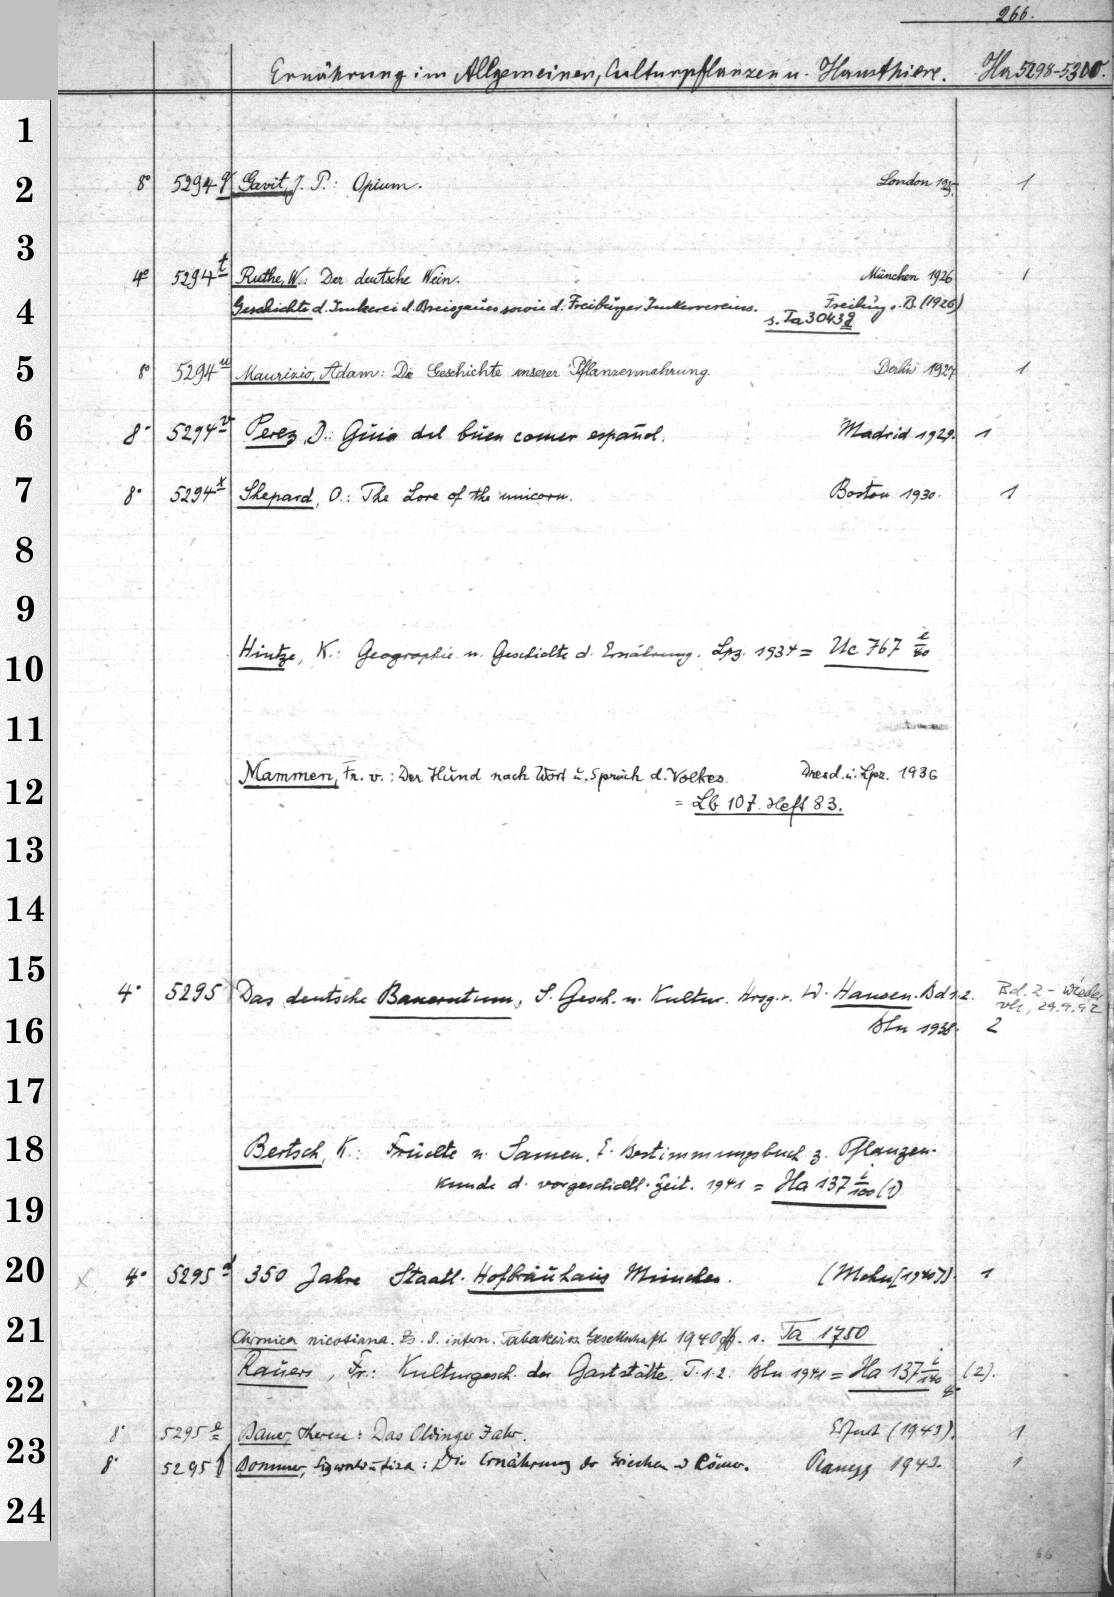 266.
Ernährung im Allgemeinen, Culturpflanzen u. Hausthiere. Ha 5298-5300.
1
2 8° 5294 q Gavit, J. P.: Opium. London 1925. 1
3 4° 5294 t Ruthe, W.: Der deutsche Wein. München 1926 1
4 Geschichte d. Imkerei d. Breisgaues sowie d. Freiburger Imkervereins. Freiburg i. B. (1926)
s. Ta 3043 g
5 8° 5294 u Maurizio, Adam: Die Geschichte unserer Pflanzennahrung. Berlin 1927 1
6 8° 5294 v Perez, D.: Guia del buen comer español. Madrid 1929. 1
7 8° 5294 x Shepard, O.: The Lore of the unicorn. Boston 1930. 1
8
9
10 Hintze, K.: Geographie u. Geschichte d. Ernährung. Lpz. 1934 = Uc 767
11
12 Mammen, Fr. v.: Der Hund nach Wort u. Spruch d. Volkes. Dresd. u. Lpz. 1936
= Lb 107. Heft 83.
13
14
15 4° 5295 Das deutsche Bauerntum, s. Gesch. u. Kultur. Hrsg. v. W. Hansen. Bd 1.2. Bd. 2 - wieder
vh, 29.9.92
16 Bln 1938. 2
17
18 Bertsch, K.: Früchte u. Samen. E. Bestimmungsbuch z. Pflanzen-
kunde d. vorgeschichtl. Zeit. 1941 = Ha 137 i/100 (1)
19
20 4° 5295 d 350 Jahre Staatl. Hofbräuhaus München. (Mchn [1940]). 1
21 Chronica nicotiana. Zs. d. intern. Tabakwiss. Gesellschaft 1940 ff. s. Ta 1750
22 Rauers, Fr.: Kulturgesch. der Gaststätte. T. 1.2. Bln 1941 = Ha 137 i/140 (2).
8° 5295 e Bauer, : Das Oldinger Jahr. Erfurt (1943). 1
23 8° 5295 f Bommer, Sigwald u. Lisa: Die Ernährung der Griechen u Römer. 1943. 1
24
66